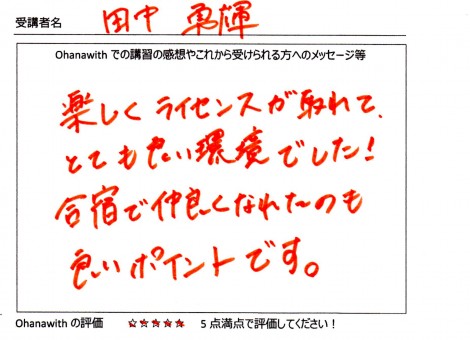 受講者名 田中 勇輝
Ohanawith での講習の感想やこれから受けられる方へのメッセージ等
楽しくライセンスが取れて、
とても良い環境でした！
合宿で仲良くなれたのも
良いポイントです。
Ohanawith の評価 ☆☆☆☆☆ 5 点満点で評価してください！